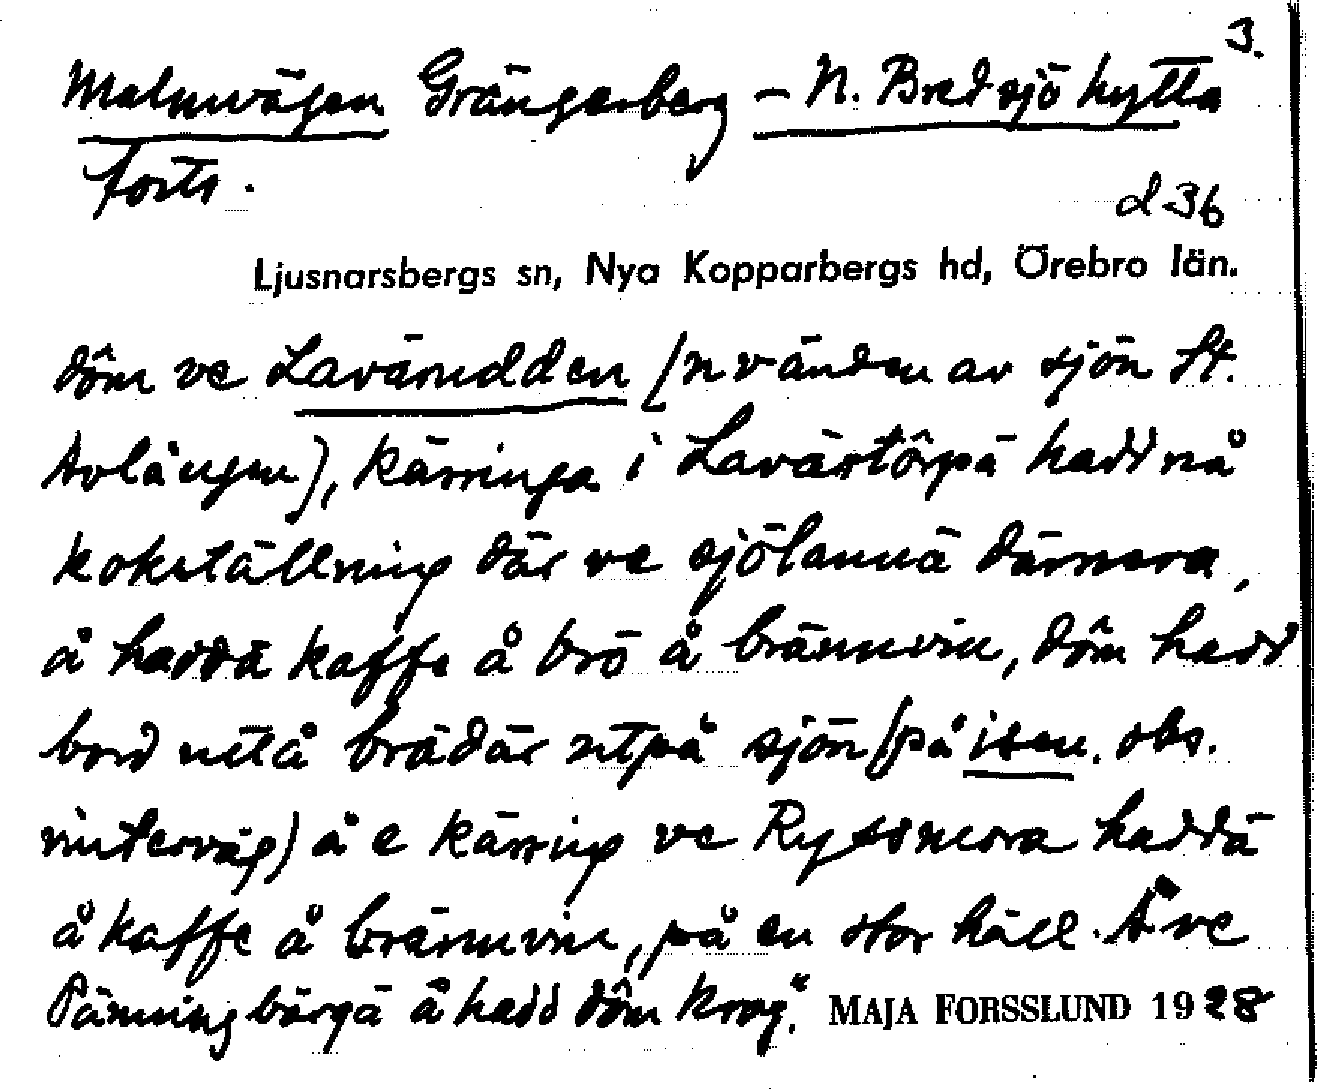 3.
Malmvägen Grängesberg - N. Bredsjöhytta
forts.
d 36
Ljusnarsbergs sn, Nya Kopparbergs hd, Örebro län.
döm ve Lavärudden (nv änden av sjön St.
Avlången), kärringa i Lavärtörpä hadd nå
kokställning där ve sjölannä därnera,
å haddä kaffe å brö å brännvin, döm hadd
bord utå brädär utpå sjön (på isen. obs.
vinterväg) å e kärring ve Ryssnora haddä
å kaffe å brännvin, på en stor häll. Å ve
Pänningbärgä å hadd döm krog". MAJA FORSSLUND 1928